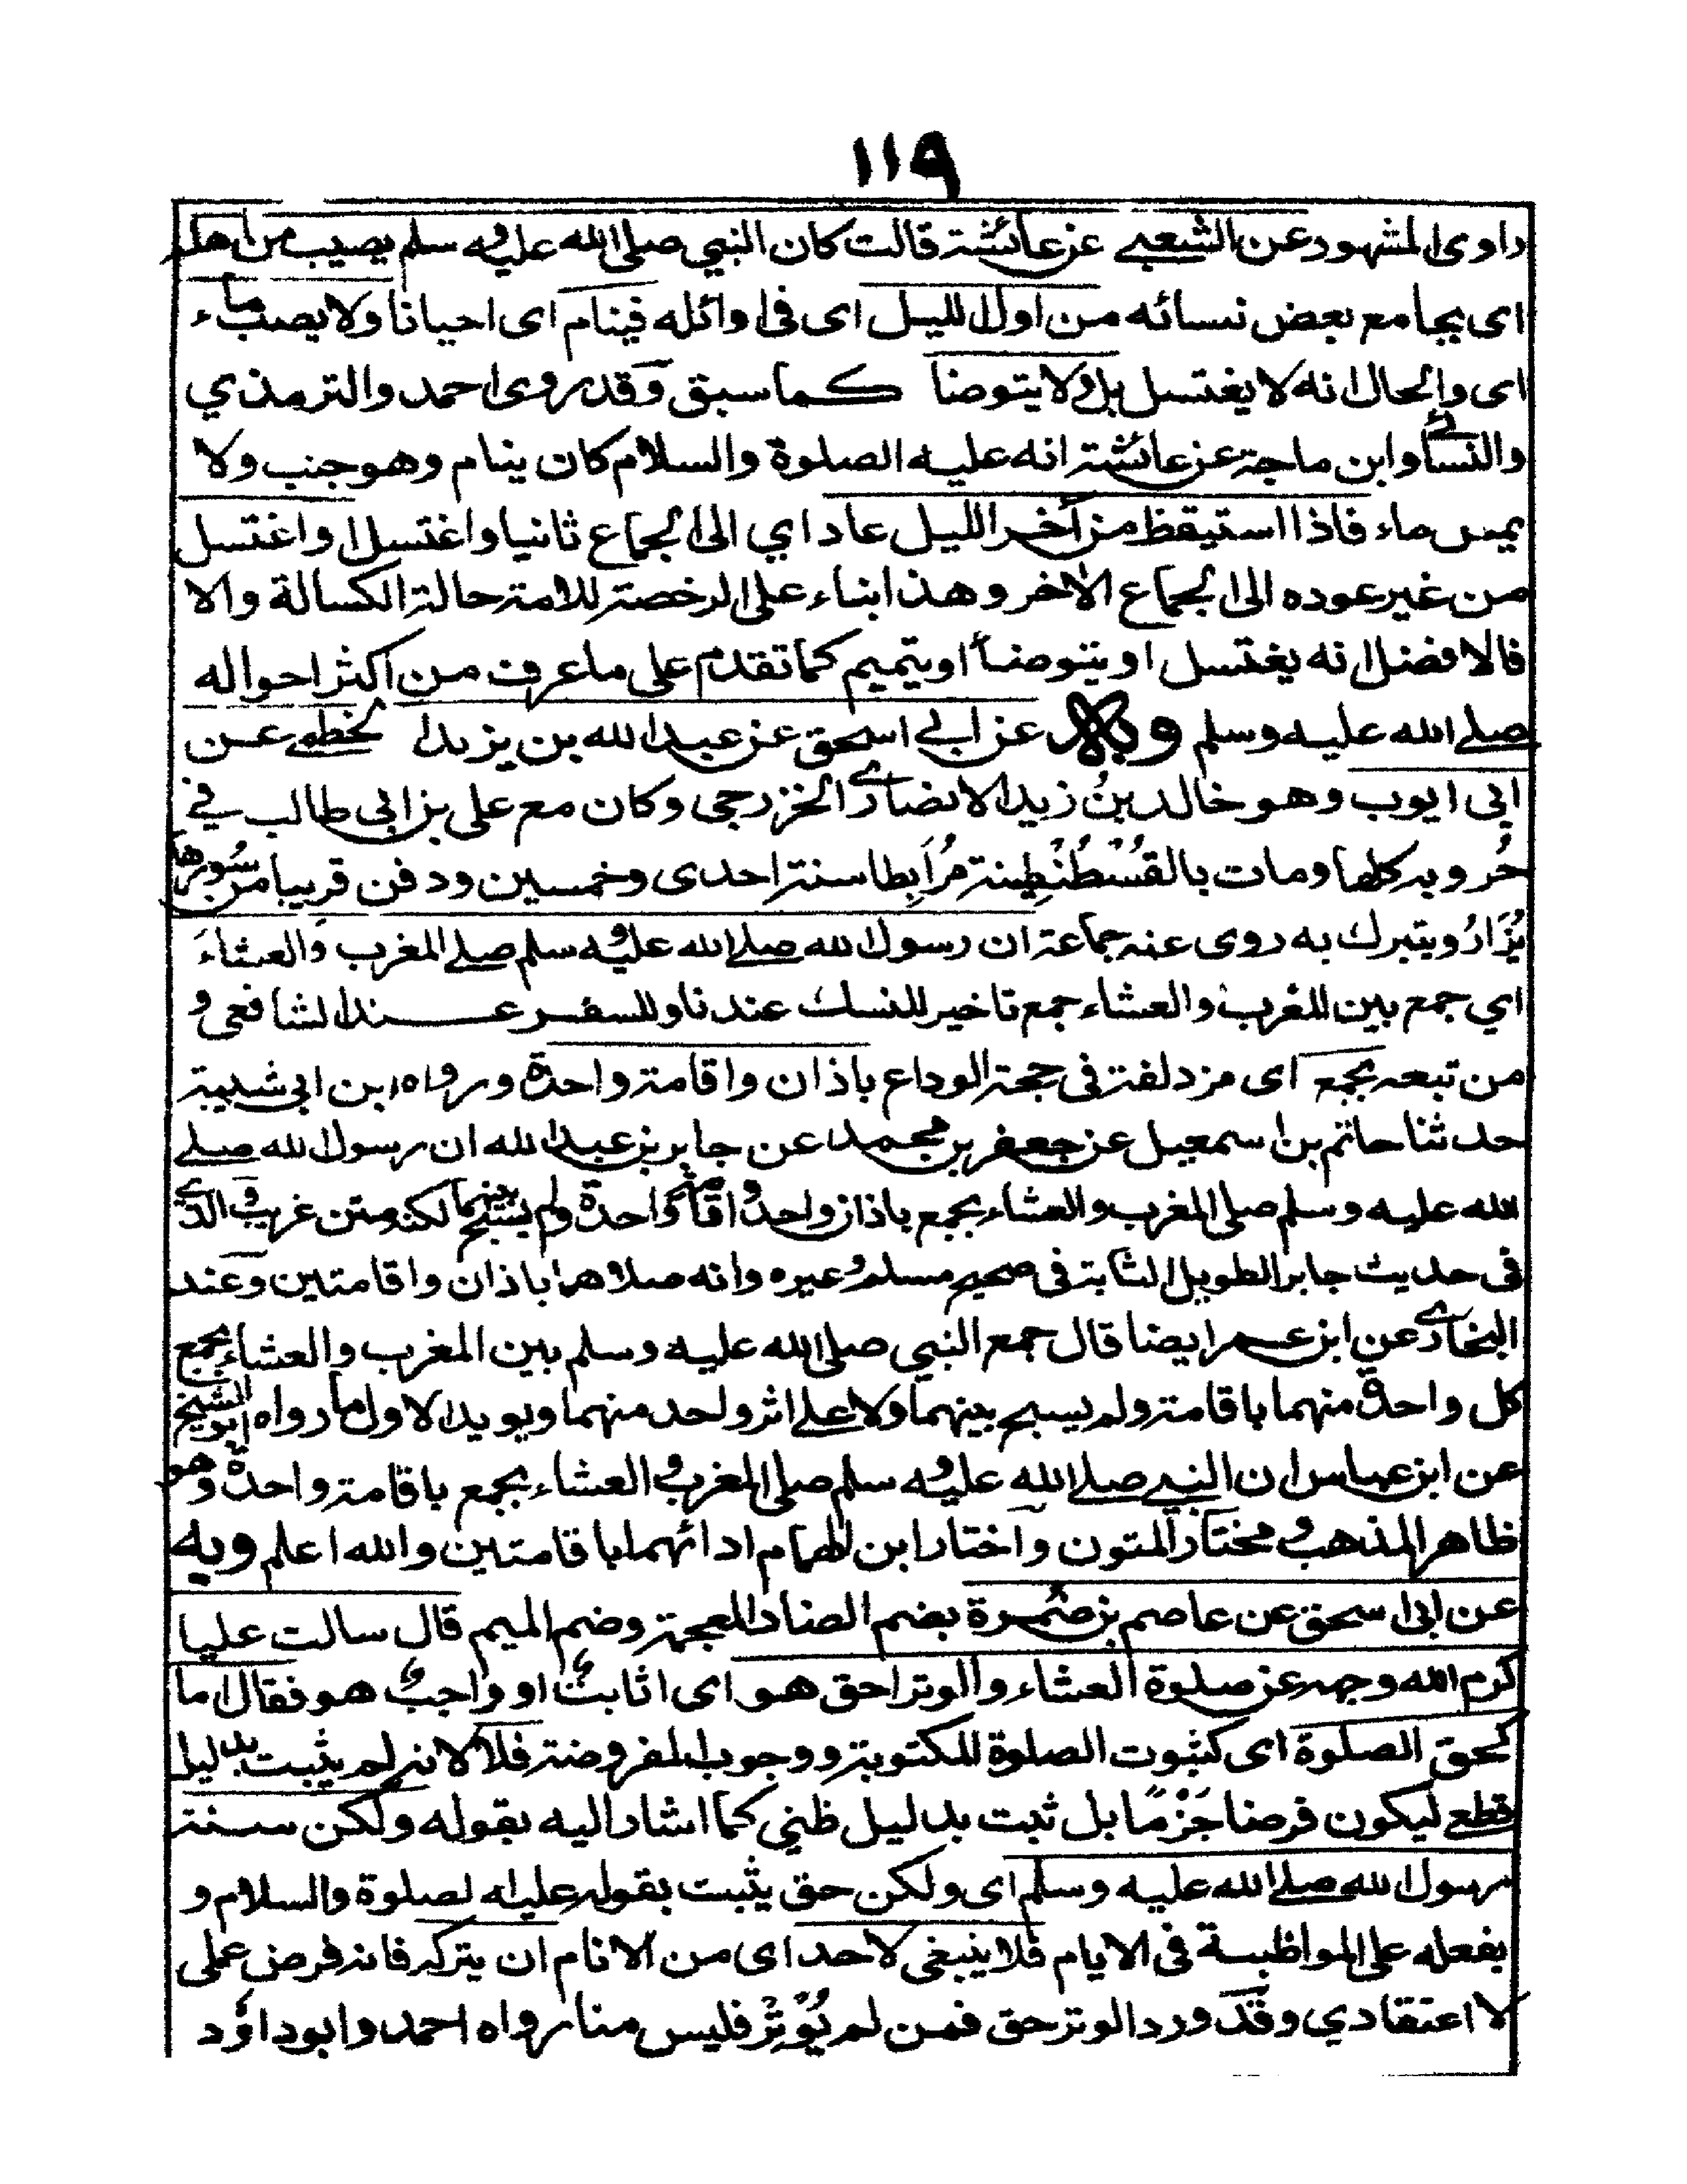 ١١٩
راوى المشهور عن الشعبي عن عائشة قالت كان النبي صلى الله عليه و سلم يصيب من اهله
اى يجامع بعض نسائه من اول الليل اى فى اوائله فينام اى احيانا ولا يصيب ماء
اى والحال انه لا يغتسل بل ولا يتوضا كما سبق وقد روى احمد والترمذي
والنسائى وابن ماجة عن عائشة انه عليه الصلوة والسلام كان ينام وهو جنب ولا
يمس ماء فاذا استيقظ من أخر الليل عاد اي الى الجماع ثانيا واغتسل او اغتسل
من غير عوده الى الجماع الاخر وهذا بناء على الرخصة للامة حالة الكسالة والا
فالافضل انه يغتسل او يتوضأ او يتميم كما تقدم على ما عرف من اكثر احواله
صلى الله عليه وسلم وبه عن ابي اسحق عن عبد الله بن يزيد الخطمي عن
ابى ايوب وهو خالد بن زيد الانصارى الخزرجى وكان مع على بن ابى طالب في
حُروبه كلها ومات بالقُسْطُنْطِينة مُرَابِطا سنة احدى وخمسين ودفن قريبا من سُورها
يُزَارُ ويتبرك به روى عنه جماعة ان رسول الله صلى الله عليه و سلم صلى المغرب والعشاءَ
اي جمع بين المغرب والعشاء جمع تاخير للنسك عندنا وللسفر عند الشافعى و
من تبعه بجمع اى مزدلفة فى حجة الوداع باذان واقامة واحدة ورواه ابن ابى شيبة
حدثنا حاتم بن اسمعيل عن جعفر بن محمد عن جابر بن عبد الله ان رسول الله صلى
الله عليه وسلم صلى المغرب والعشاء بجمع باذان واحد و اقامة واحدة ولم يسبح بينهما لكنه متن غريب و الذى
فى حديث جابر الطويل الثابت فى صحيح مسلم وغيره وانه صلاهما باذان واقامتين وعند
البخارى عن ابن عمر ايضا قال جمع النبي صلى الله عليه وسلم بين المغرب والعشاء بجمع
كل واحدة منهما باقامة ولم يسبح بينهما ولا على اثر واحد منهما ويويد الاول ما رواه ابو الشيخ
عن ابن عباس ان النبي صلى الله عليه و سلم صلى المغرب و العشاء بجمع باقامة واحدة وهو
ظاهر المذهب و مختار المتون واختار ابن الهمام ادائهما باقامتين والله اعلم وبه
عن ابى اسحق عن عاصم بن ضمرة بضم الضاد المعجمة وضم الميم قال سالت عليا
كرم الله وجهه عن صلوة العشاء والوتر احق هو اى اثابت او واجب هو فقال اما
كحق الصلوة اى كثبوت الصلوة المكتوبة ووجوب المفروضة فلا لانه لم يثبت بدليل
قطعى ليكون فرضا جَزْمًا بل ثبت بدليل ظني كما اشار اليه بقوله ولكن سنة
رسول الله صلى الله عليه وسلم اى ولكن حق يثبت بقوله عليه الصلوة والسلام و
بفعله على المواظبة فى الايام فلا ينبغى لاحد اى من الانام ان يتركه فانه فرض عملى
لا اعتقادي وقد ورد الوتر حق فمن لم يُوْتِرْ فليس منا رواه احمد وابو داؤد